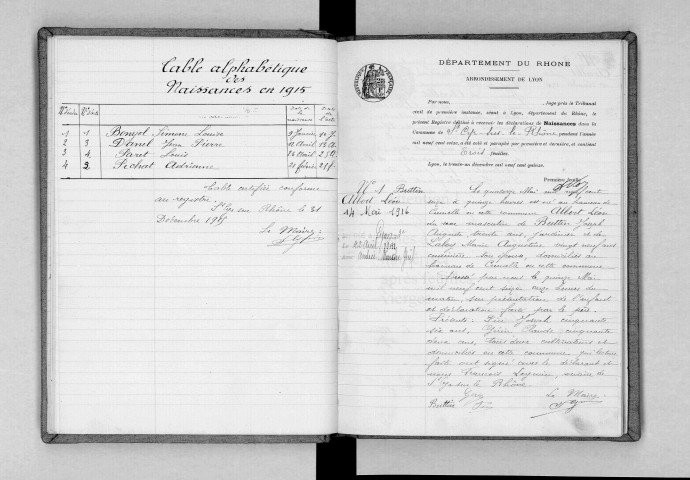 Table alphabétique
des
Naissances en 1915
1 1 Bonyol Simone Louise 9 Janvier
2 3 Danel Jean Pierre 12 Avril
3 4 Louis 24 Avril
4 2 Pichat Adrienne février
Table certifiée conforme
au registre
St Cyr sur Rhône le 31
Décembre 1915
Le Maire:
DÉPARTEMENT DU RHONE
ARRONDISSEMENT DE LYON
Par nous, Juge près le Tribunal
civil de première instance, séant à Lyon, département du Rhône, le
présent Registre destiné à recevoir les déclarations de Naissances dans la
Commune de St Cyr sur le Rhône pendant l'année
mil neuf cent seize, a été coté et paraphé par première et dernière, et contient
feuilles.
Lyon, le trente-un décembre mil neuf cent quinze.
Première feuille
No 1 Buttin
Albert Léon
14 Mai 1916
Le quatorze Mai mil neuf cent
seize à quinze heures est né au hameau de
en cette commune Albert Léon
du sexe masculin de Buttin Joseph
Auguste trente ans, jardinier et de
Marie Augustine vingt neuf ans
cuisinière son épouse, domiciliés au
hameau de en cette commune
Dressé par nous le quinze Mai
mil neuf cent seize onze heures du
matin, sur présentation de l'enfant
et déclaration faite par le père.
Présents: Joseph cinquante
six ans, Claude cinquante
deux ans, tous deux cultivateurs et
domiciliés en cette commune, qui lecture
faite ont signé avec le déclarant et
nous François maire de
St Cyr sur le Rhône
Le Maire
Buttin